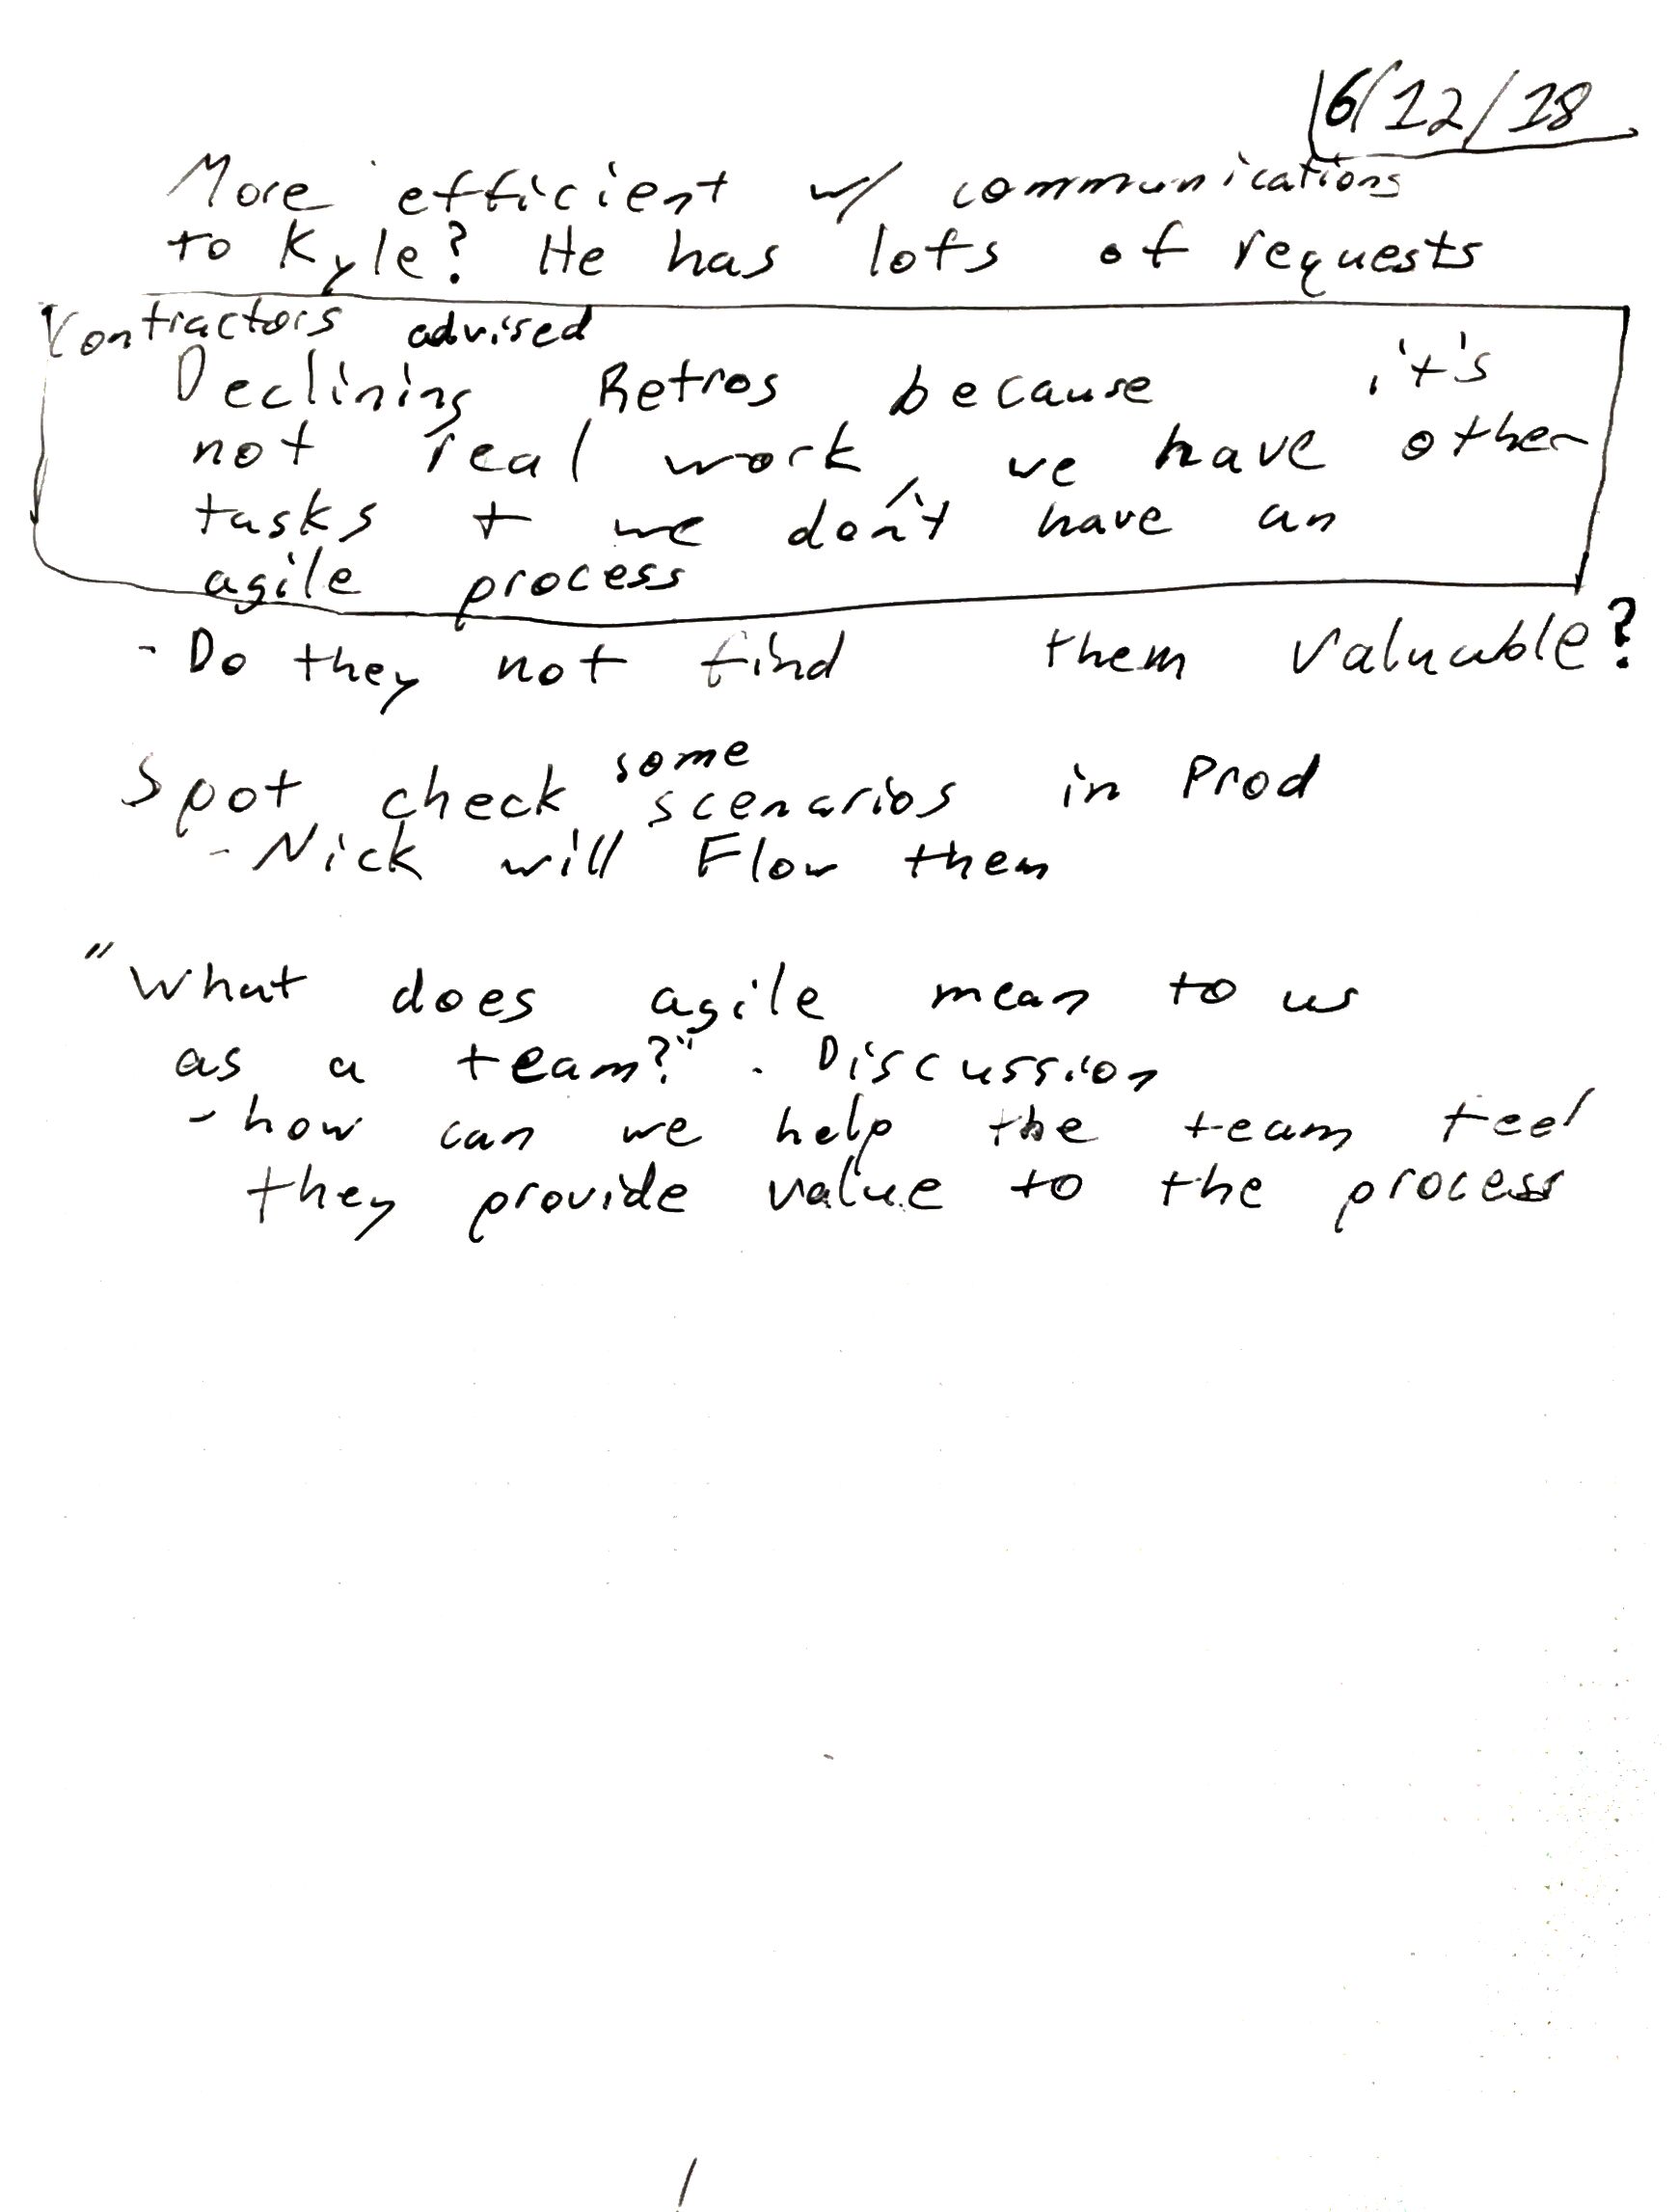 6/12/18
More efficient w/ communications
to Kyle? He has lots of requests
Contractors advised
Declining Retros because it's
not real work, we have other
tasks + we don't have an
agile process
- Do they not find them valuable?
Spot check some scenarios in Prod
- Nick will Flow them
"What does agile mean to us
as a team?" - Discussion
- how can we help the team feel
they provide value to the process